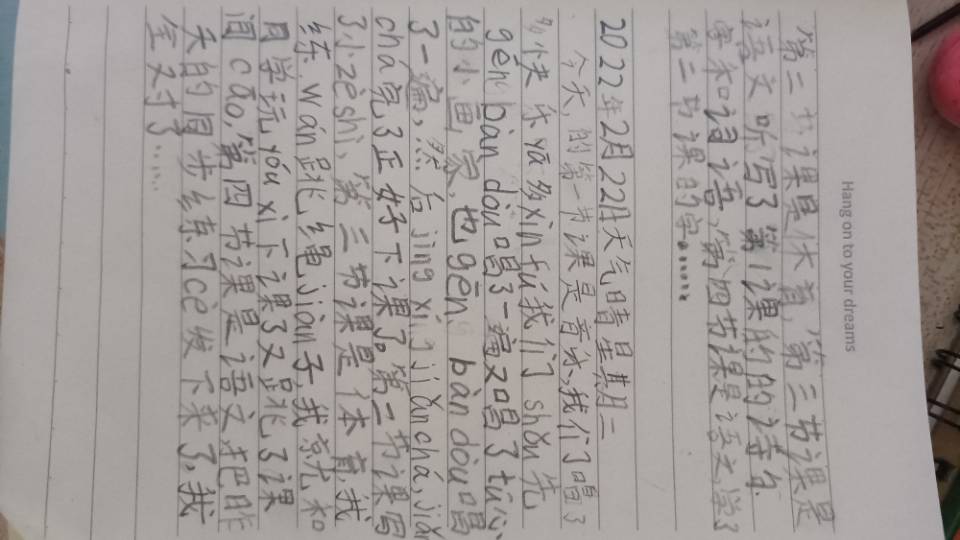 Hang on to your dreams
第二节课是体育,第三节课是
语文听写了第1课的的语句
字和词语,第四节课是语文学了
第二节课的字......
2022年2月22日天气晴星期二
今天,的第一节课是音乐,我们唱了
多快乐yā多xìn fú我们shǒu先
gēn bàn dòu唱了一遍又唱了
的小画家也gēn bàn dòu唱
了一遍,然后jìng xíng jiǎn chá,jiǎn
chá完了正好下课了。第二节课写
了小zèshì、第三节课是体育,我
练wán跳绳jiàn子,我就和
同学玩yóu xì下课了又跳了课
间cāo,第四节课是语文把昨
天的同步练习cè发下来了,我
全对了......